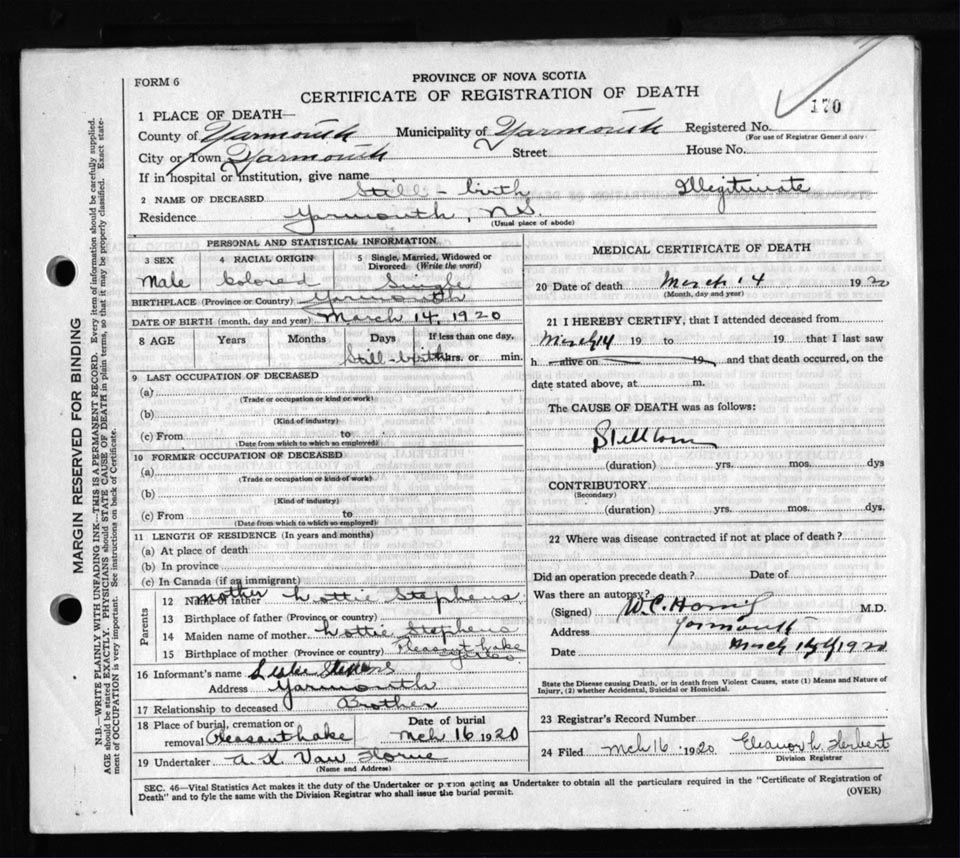 PROVINCE OF NOVA SCOTIA
FORM 6
CERTIFICATE OF REGISTRATION OF DEATH
170
1 PLACE OF DEATH—
County of Yarmouth Municipality of Yarmouth Registered No.
(For use of Registrar General only)
City or Town Yarmouth Street House No.
If in hospital or institution, give name
2 NAME OF DECEASED Still-birth Illegitimate
Residence Yarmouth, N.S.
(Usual place of abode)
PERSONAL AND STATISTICAL INFORMATION
3 SEX 4 RACIAL ORIGIN 5 Single, Married, Widowed or Divorced (Write the word)
Male Colored Single
BIRTHPLACE (Province or Country) Yarmouth
DATE OF BIRTH (month, day and year) March 14, 1920
8 AGE Years Months Days If less than one day,
Still-birth hrs. or min.
9 LAST OCCUPATION OF DECEASED
(a)
(Trade or occupation or kind of work)
(b)
(Kind of industry)
(c) From to
(Date from which to which so employed)
10 FORMER OCCUPATION OF DECEASED
(a)
(Trade or occupation or kind of work)
(b)
(Kind of industry)
(c) From to
(Date from which to which so employed)
11 LENGTH OF RESIDENCE (In years and months)
(a) At place of death
(b) In province
(c) In Canada (if an immigrant)
Parents
12 Name of father mother Lottie Stephens
13 Birthplace of father (Province or country)
14 Maiden name of mother Lottie Stephens
15 Birthplace of mother (Province or country) Pleasant Lake
16 Informant's name
Address Yarmouth
17 Relationship to deceased Brother
18 Place of burial, cremation or removal Pleasant Lake Date of burial Mch 16 1920
19 Undertaker A. K. Van Horne
(Name and Address)
MEDICAL CERTIFICATE OF DEATH
20 Date of death March 14 1920
(Month, day and year)
21 I HEREBY CERTIFY, that I attended deceased from
March 14 19 to 19 that I last saw
h alive on 19 and that death occurred, on the
date stated above, at m.
The CAUSE OF DEATH was as follows:
Stillborn
(duration) yrs. mos. dys
CONTRIBUTORY
(Secondary)
(duration) yrs. mos. dys.
22 Where was disease contracted if not at place of death?
Did an operation precede death? Date of
Was there an autopsy?
(Signed) W.C. M.D.
Address Yarmouth
Date March 1920
State the Disease causing Death, or in death from Violent Causes, state (1) Means and Nature of
Injury, (2) whether Accidental, Suicidal or Homicidal.
23 Registrar's Record Number
24 Filed Mch 16 1920 Eleanor L. Herbert
Division Registrar
SEC. 46—Vital Statistics Act makes it the duty of the Undertaker or person acting as Undertaker to obtain all the particulars required in the "Certificate of Registration of
Death" and to fyle the same with the Division Registrar who shall issue the burial permit.
(OVER)
MARGIN RESERVED FOR BINDING
N.B.—WRITE PLAINLY WITH UNFADING INK—THIS IS A PERMANENT RECORD. Every item of information should be carefully supplied.
AGE should be stated EXACTLY. PHYSICIANS should STATE CAUSE OF DEATH in plain terms, so that it may be properly classified. Exact state-
ment of OCCUPATION is very important. See instructions on back of Certificate.